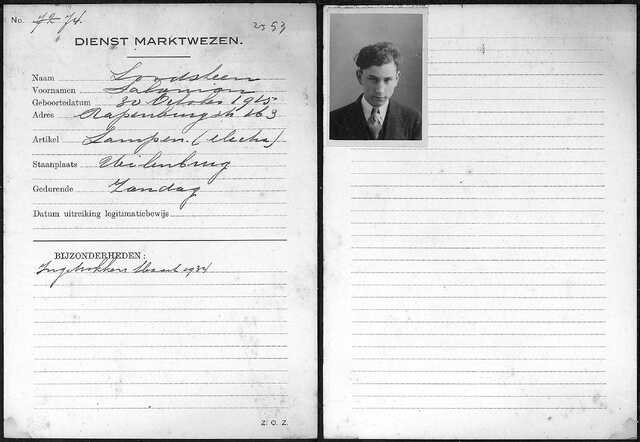 No. 72 74
2593
DIENST MARKTWEZEN.
Naam Loodsteen
Voornamen Salomon
Geboortedatum 30 October 1915
Adres Rapenburgstr 63
Artikel Lampen (electr)
Staanplaats Uilenburg
Gedurende Zondag
Datum uitreiking legitimatiebewijs
BIJZONDERHEDEN:
Ingetrokken Maart 1934
Z. O. Z.